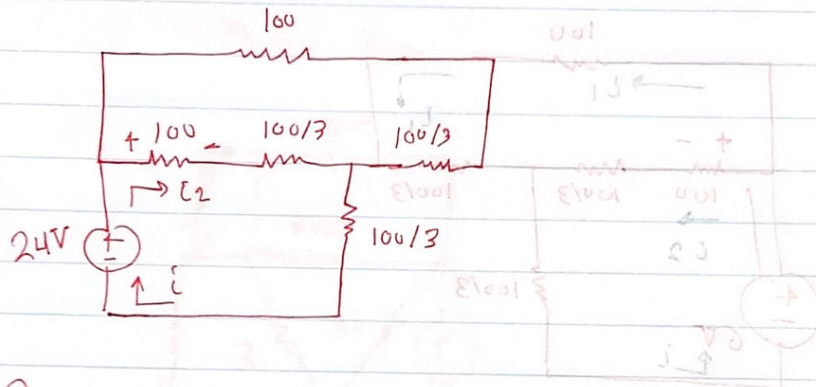 100
+ 100 - 100/3 100/3
i2
24V + - 100/3
i